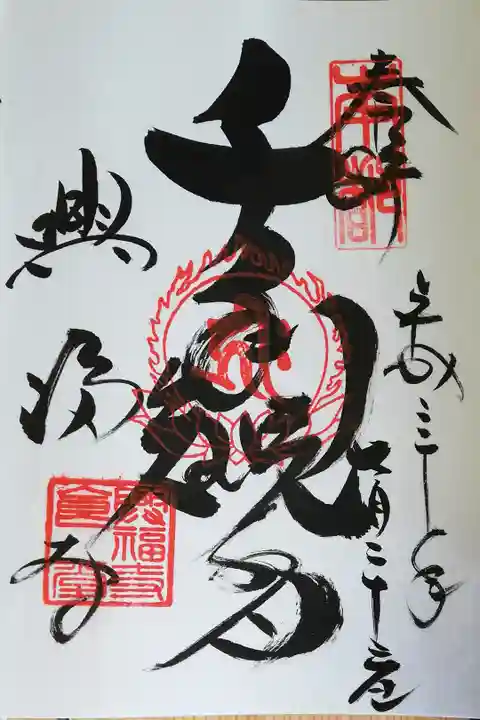 奉拝
平成三十年
月二十
千手観音
興福寺
興福寺
食堂